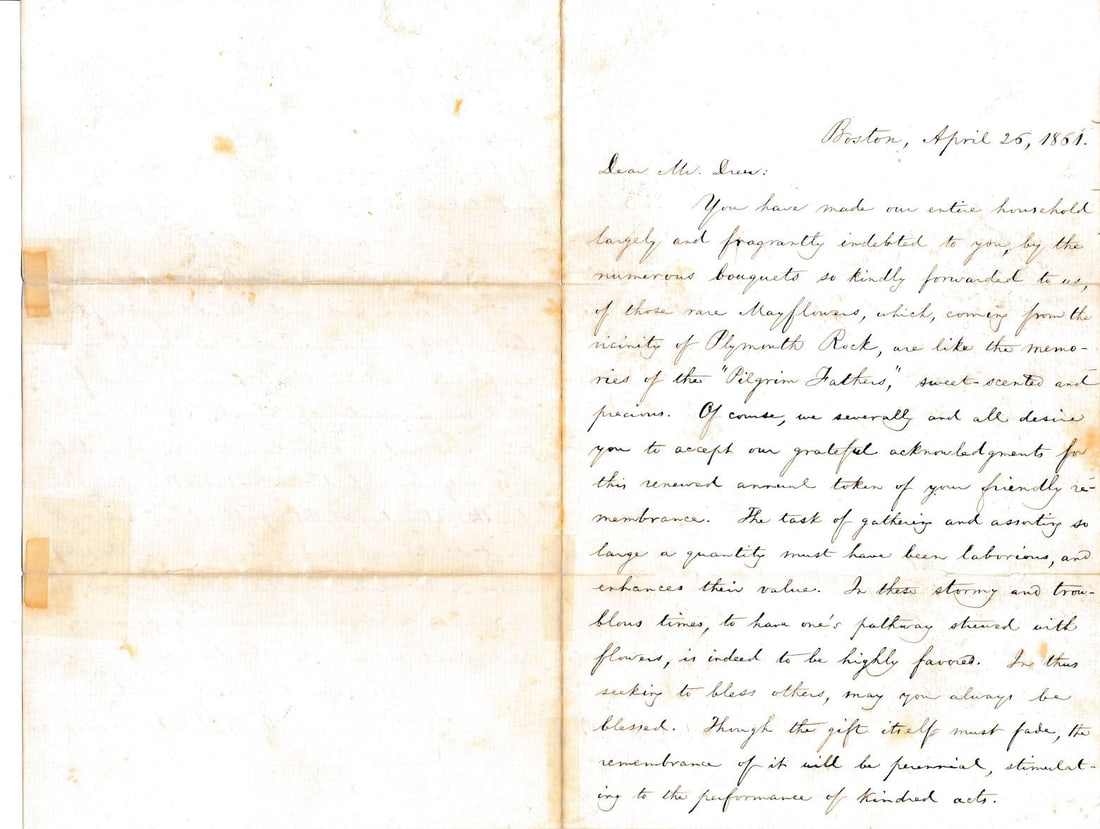 Boston, April 26, 1861.
Dear Mr. Drew:
You have made our entire household
largely and fragrantly indebted to you, by the
numerous bouquets so kindly forwarded to us,
of those rare Mayflowers, which, coming from the
vicinity of Plymouth Rock, are like the memo-
ries of the "Pilgrim Fathers," sweet-scented and
precious. Of course, we severally and all desire
you to accept our grateful acknowledgments for
this renewed annual token of your friendly re-
membrance. The task of gathering and assorting so
large a quantity must have been laborious, and
enhances their value. In these stormy and trou-
blous times, to have one's pathway strewed with
flowers, is indeed to be highly favored. In thus
seeking to bless others, may you always be
blessed. Though the gift itself must fade, the
remembrance of it will be perennial, stimulat-
ing to the performance of kindred acts.